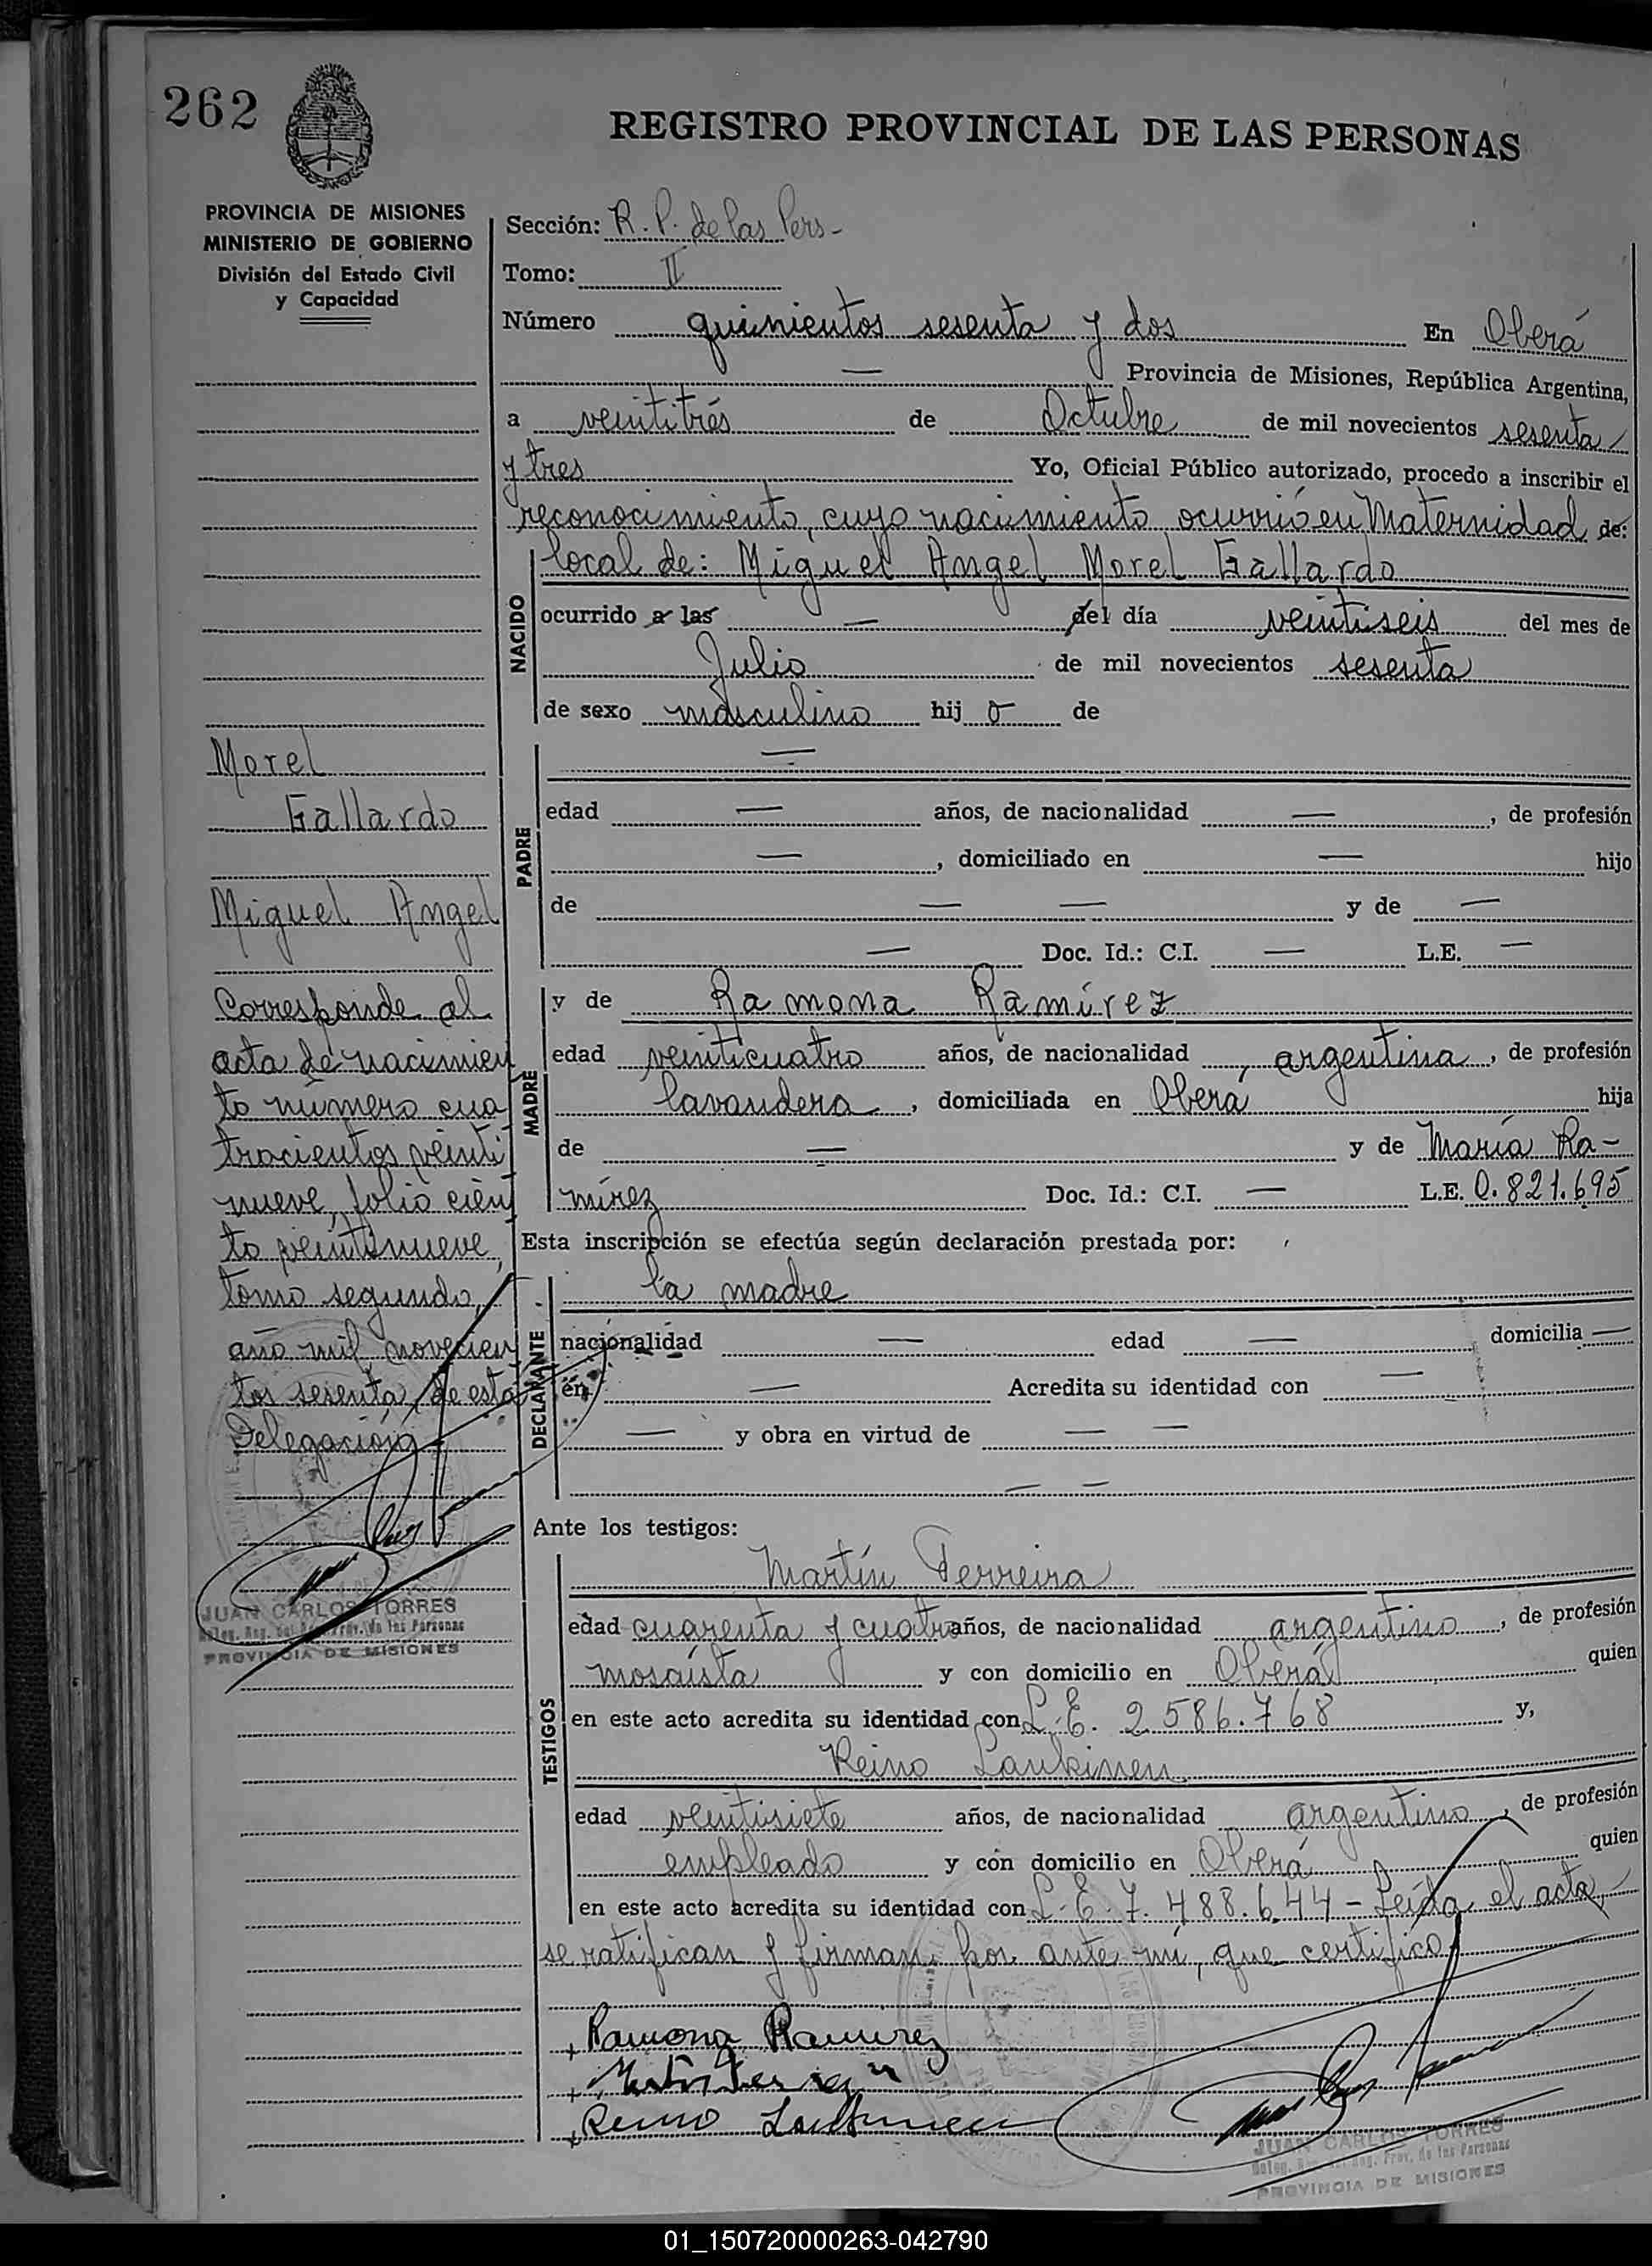 262
REGISTRO PROVINCIAL DE LAS PERSONAS
PROVINCIA DE MISIONES
MINISTERIO DE GOBIERNO
División del Estado Civil
y Capacidad
Sección: R. P. de las Pers-
Tomo: II
Número quinientos sesenta y dos En Oberá
— Provincia de Misiones, República Argentina,
a veintitrés de Octubre de mil novecientos sesenta
y tres Yo, Oficial Público autorizado, procedo a inscribir el
reconocimiento, cuyo nacimiento ocurrió en Maternidad de:
NACIDO
local de: Miguel Angel Morel Gallardo
ocurrido a las — del día veintiseis del mes de
Julio de mil novecientos sesenta
de sexo masculino hij o de
PADRE
—
edad — años, de nacionalidad —, de profesión
—, domiciliado en — hijo
de — — y de —
— Doc. Id.: C.I. — L.E. —
MADRE
y de Ramona Ramírez
edad veinticuatro años, de nacionalidad argentina, de profesión
lavandera, domiciliada en Oberá hija
de — y de María Ra-
mírez Doc. Id.: C.I. — L.E. 0.821.695
Esta inscripción se efectúa según declaración prestada por:
DECLARANTE
la madre
nacionalidad — edad — domicilia —
en — Acredita su identidad con —
— y obra en virtud de — —
— —
Ante los testigos:
TESTIGOS
Martín Ferreira
edad cuarenta y cuatro años, de nacionalidad argentino, de profesión
mosaísta y con domicilio en Oberá quien
en este acto acredita su identidad con L.E. 2.586.768 y,
Reino Laukinen
edad veintisiete años, de nacionalidad argentino, de profesión
empleado y con domicilio en Oberá quien
en este acto acredita su identidad con L.E. 7.488.644 - Leída el acta,
se ratifican y firman por ante mí, que certifico
+ Ramona Ramirez
+
+ Reino Laukinen
JUAN CARLOS TORRES
Deleg. Reg. Prov. de las Personas
PROVINCIA DE MISIONES
Morel
Gallardo
Miguel Angel
Corresponde al
acta de nacimien
to número cua
trocientos veinti
nueve, folio cien
to veintinueve,
tomo segundo,
año mil novecien
tos sesenta, de esta
Delegación
JUAN CARLOS TORRES
Deleg. Reg. del Reg. Prov. de las Personas
PROVINCIA DE MISIONES
01_150720000263-042790